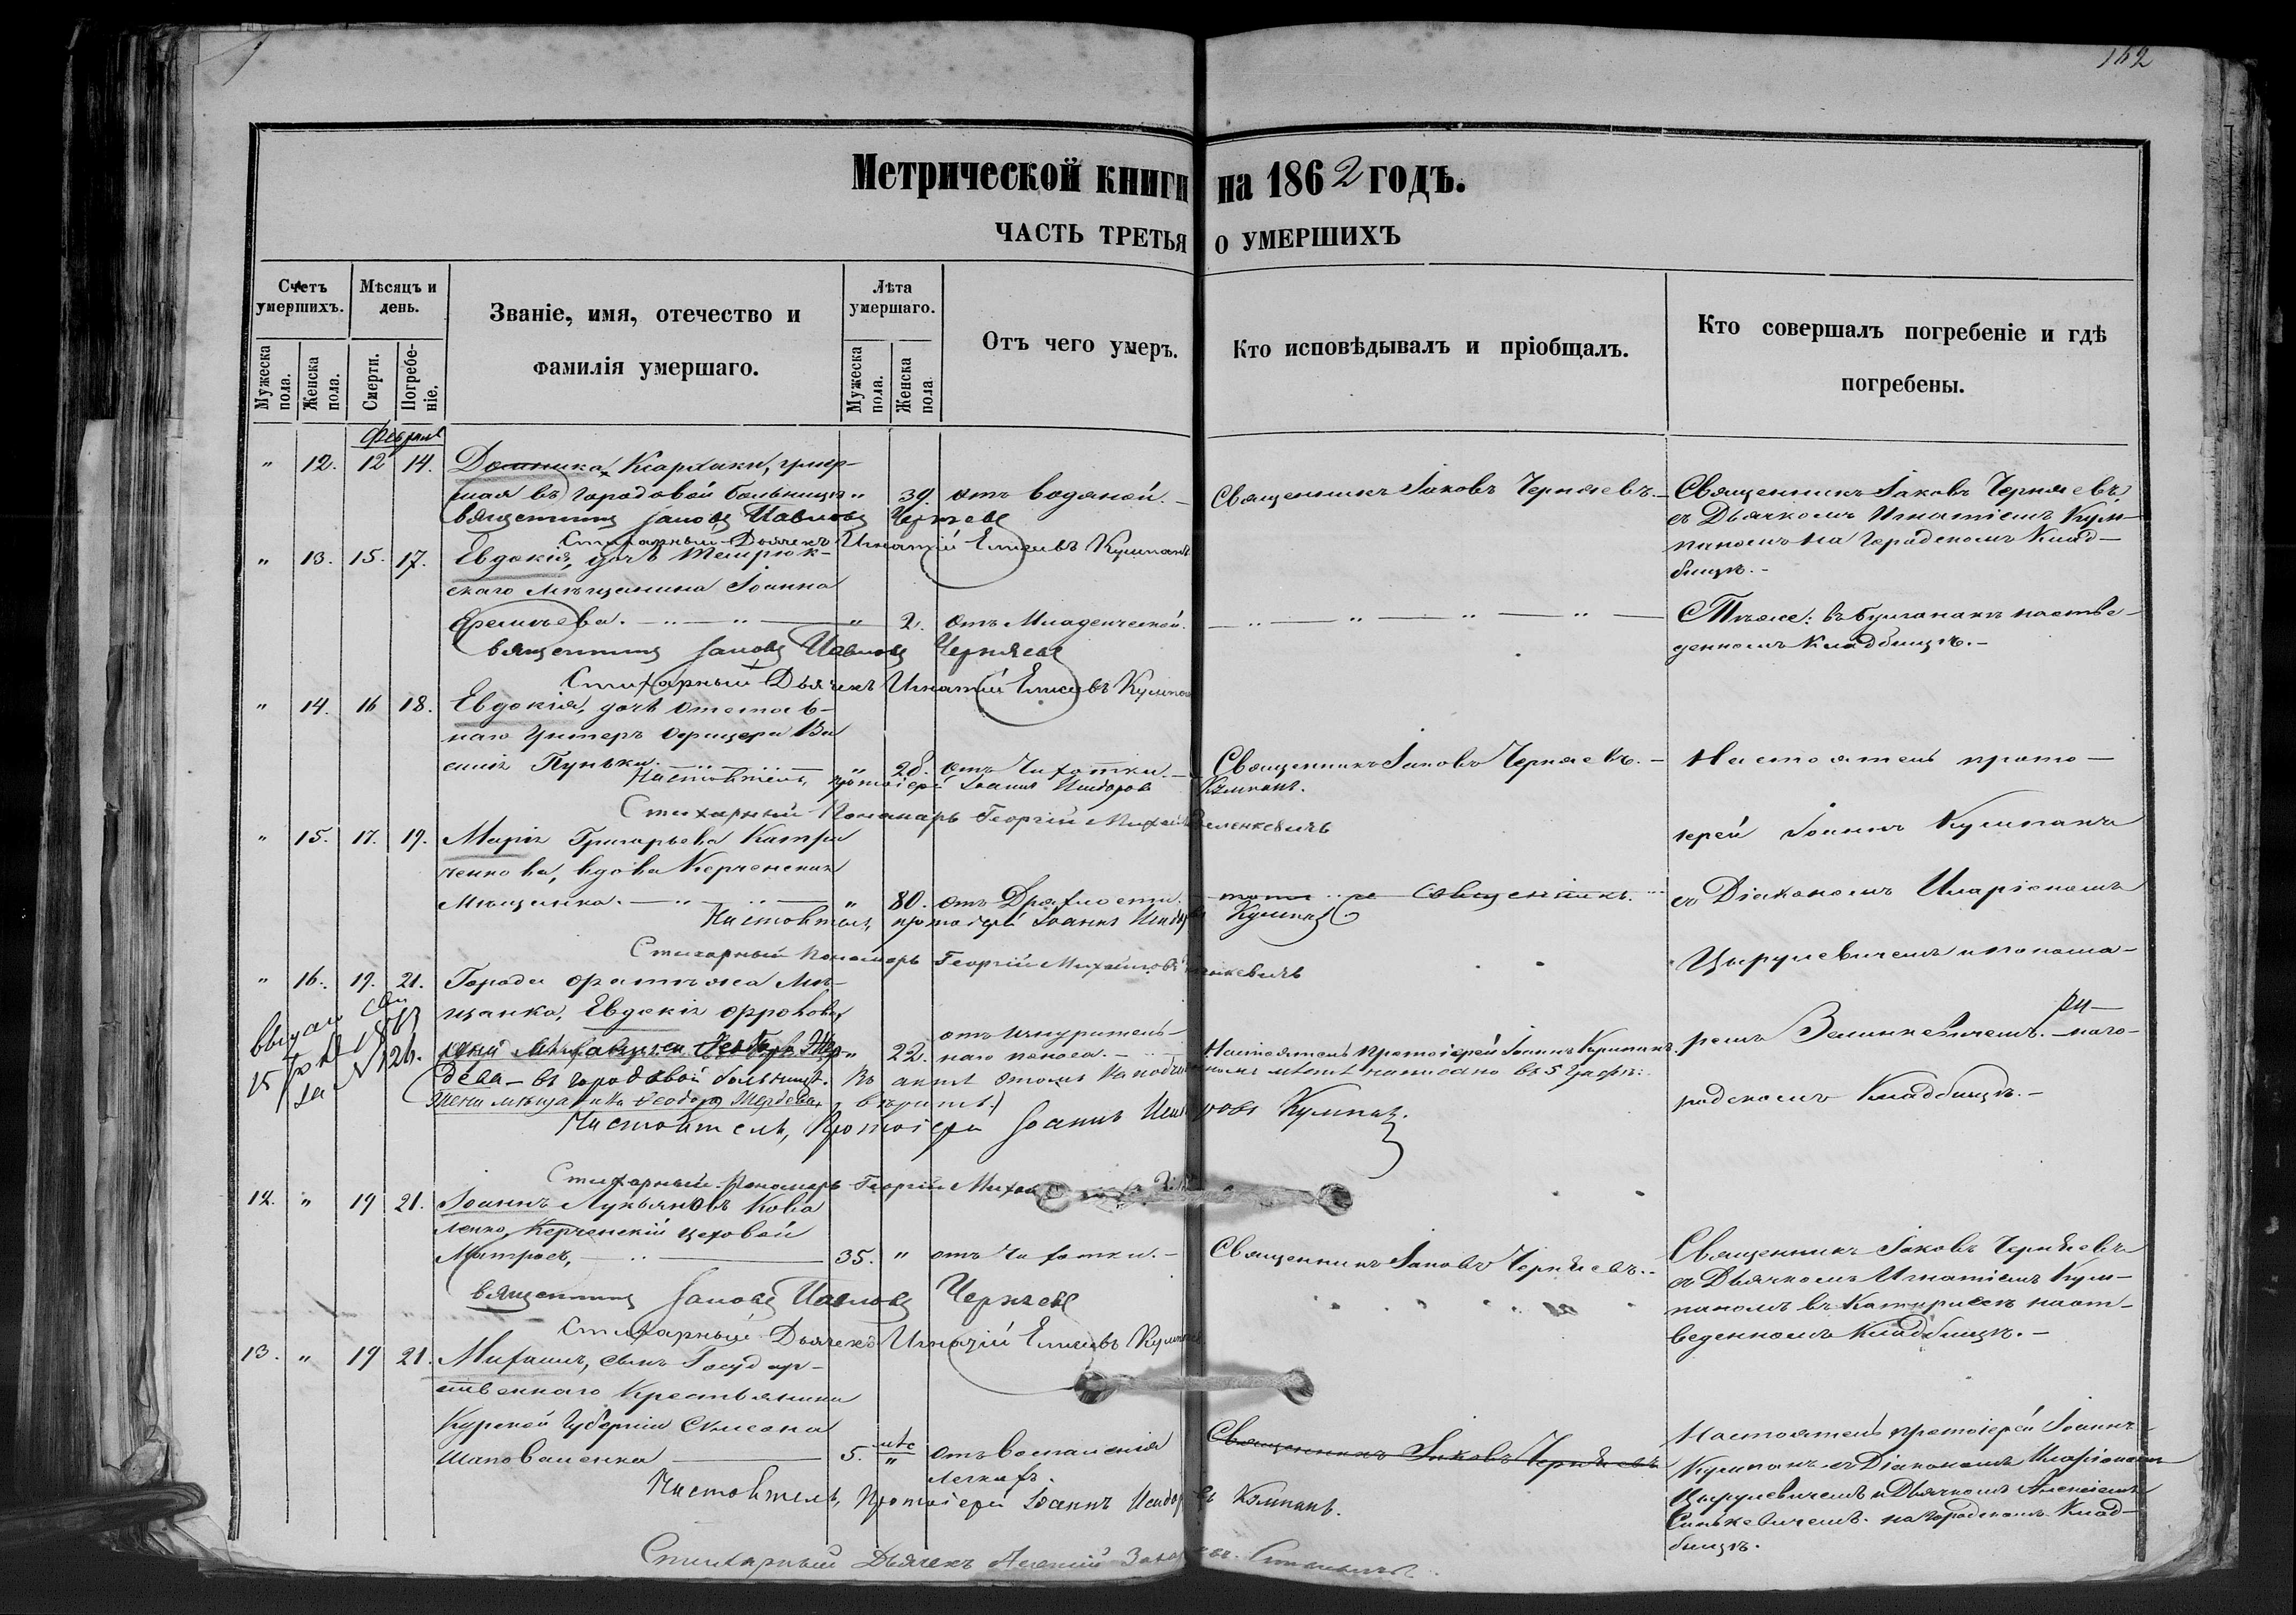 162
Метрической книги на 1862 годъ.
ЧАСТЬ ТРЕТЬЯ О УМЕРШИХЪ
Счетъ умершихъ.
Мужеска пола.
Женска пола.
Мѣсяцъ и день.
Смерти.
Погребе-ніе.
Званіе, имя, отечество и
фамилія умершаго.
Лѣта умершаго.
Мужеска пола.
Женска пола
Отъ чего умеръ.
Кто исповѣдывалъ и пріобщалъ.
Кто совершалъ погребеніе и гдѣ
погребены.
Февраль
" 12. 12 14.
умер-
шая въ городовой больницѣ " 39. отъ водяной. Священникъ Іаковъ Черняевъ.
Священникъ Іаковъ Черняевъ
съ Дьячкомъ Игнатіемъ Кум-
паномъ на Городскомъ Клад-
бищѣ.
Священникъ Іаковъ Павловъ Черняевъ
Стихарный Дьячекъ Игнатій Елисеевъ Кумпанъ
" 13. 15. 17. Евдокія, дочь Темрюк-
скаго мѣщанина Іоанна
" 2. отъ Младенческой.
Тѣже: въ Булганакѣ на отве-
денномъ Кладбищѣ.
Священникъ Іаковъ Павловъ Черняевъ
Стихарный Дьячекъ Игнатій Елисеевъ Кумпанъ
" 14. 16 18. Евдокія, дочь отстав-
наго Унтеръ Офицера Ва
силія Пуньки. " 28. отъ Чахотки. Священникъ Іаковъ Черняевъ.
Настоятель прото-
іерей Іоаннъ Кумпанъ
съ Діакономъ Иларіономъ
Цырулевичемъ и понома-
ремъ Зелинкевичемъ. на го-
родскомъ Кладбищѣ.
Настоятель, протоіерей Іоаннъ Исидоровъ Кумпанъ.
Стихарный Пономарь Георгій Зеленкевичъ
" 15. 17. 19. Марія Григорьева
вдова Керченская
Мѣщанка. " 80. отъ Дряхлости. священникъ.
Настоятель, протоіерей Іоаннъ Исидоровъ Кумпанъ
Стихарный пономарь Георгій Михайловъ Зеленкевичъ
" 16. 19. 21. Города
щанка, Евдокія
" 22. отъ изнурительнаго поноса. Настоятель протоіерей Іоаннъ Кумпанъ.
въ городовой больницѣ.
жена мѣщанина Феодора
вѣрить.
№ 126.
Настоятель, Протоіерей Іоаннъ Исидоровъ Кумпанъ.
Стихарный Пономарь Георгій
12. " 19 21. Іоаннъ Лукьяновъ Кова
ленко, Керченскій цеховой
Матросъ, 35. " отъ Чахотки. Священникъ Іаковъ Черняевъ.
Священникъ Іаковъ Черняевъ
съ Дьячкомъ Игнатіемъ Кум-
паномъ въ на от-
веденномъ Кладбищѣ.
Священникъ Іаковъ Павловъ Черняевъ
Стихарный Дьячекъ Игнатій Елисеевъ Кумпанъ
13. " 19 21. Михаилъ, сынъ Государ-
ственнаго Крестьянина
Курской Губерніи
Шаповаленка 5. мѣс " отъ воспаленія
легкихъ.
Священникъ Іаковъ Черняевъ
Настоятель протоіерей Іоаннъ
Кумпанъ съ Діакономъ Иларіономъ
Цырулевичемъ и Дьячкомъ Алексіемъ
на городскомъ Клад-
бищѣ.
Настоятель, Протоіерей Іоаннъ Исидоровъ Кумпанъ.
Стихарный Дьячекъ Алексій